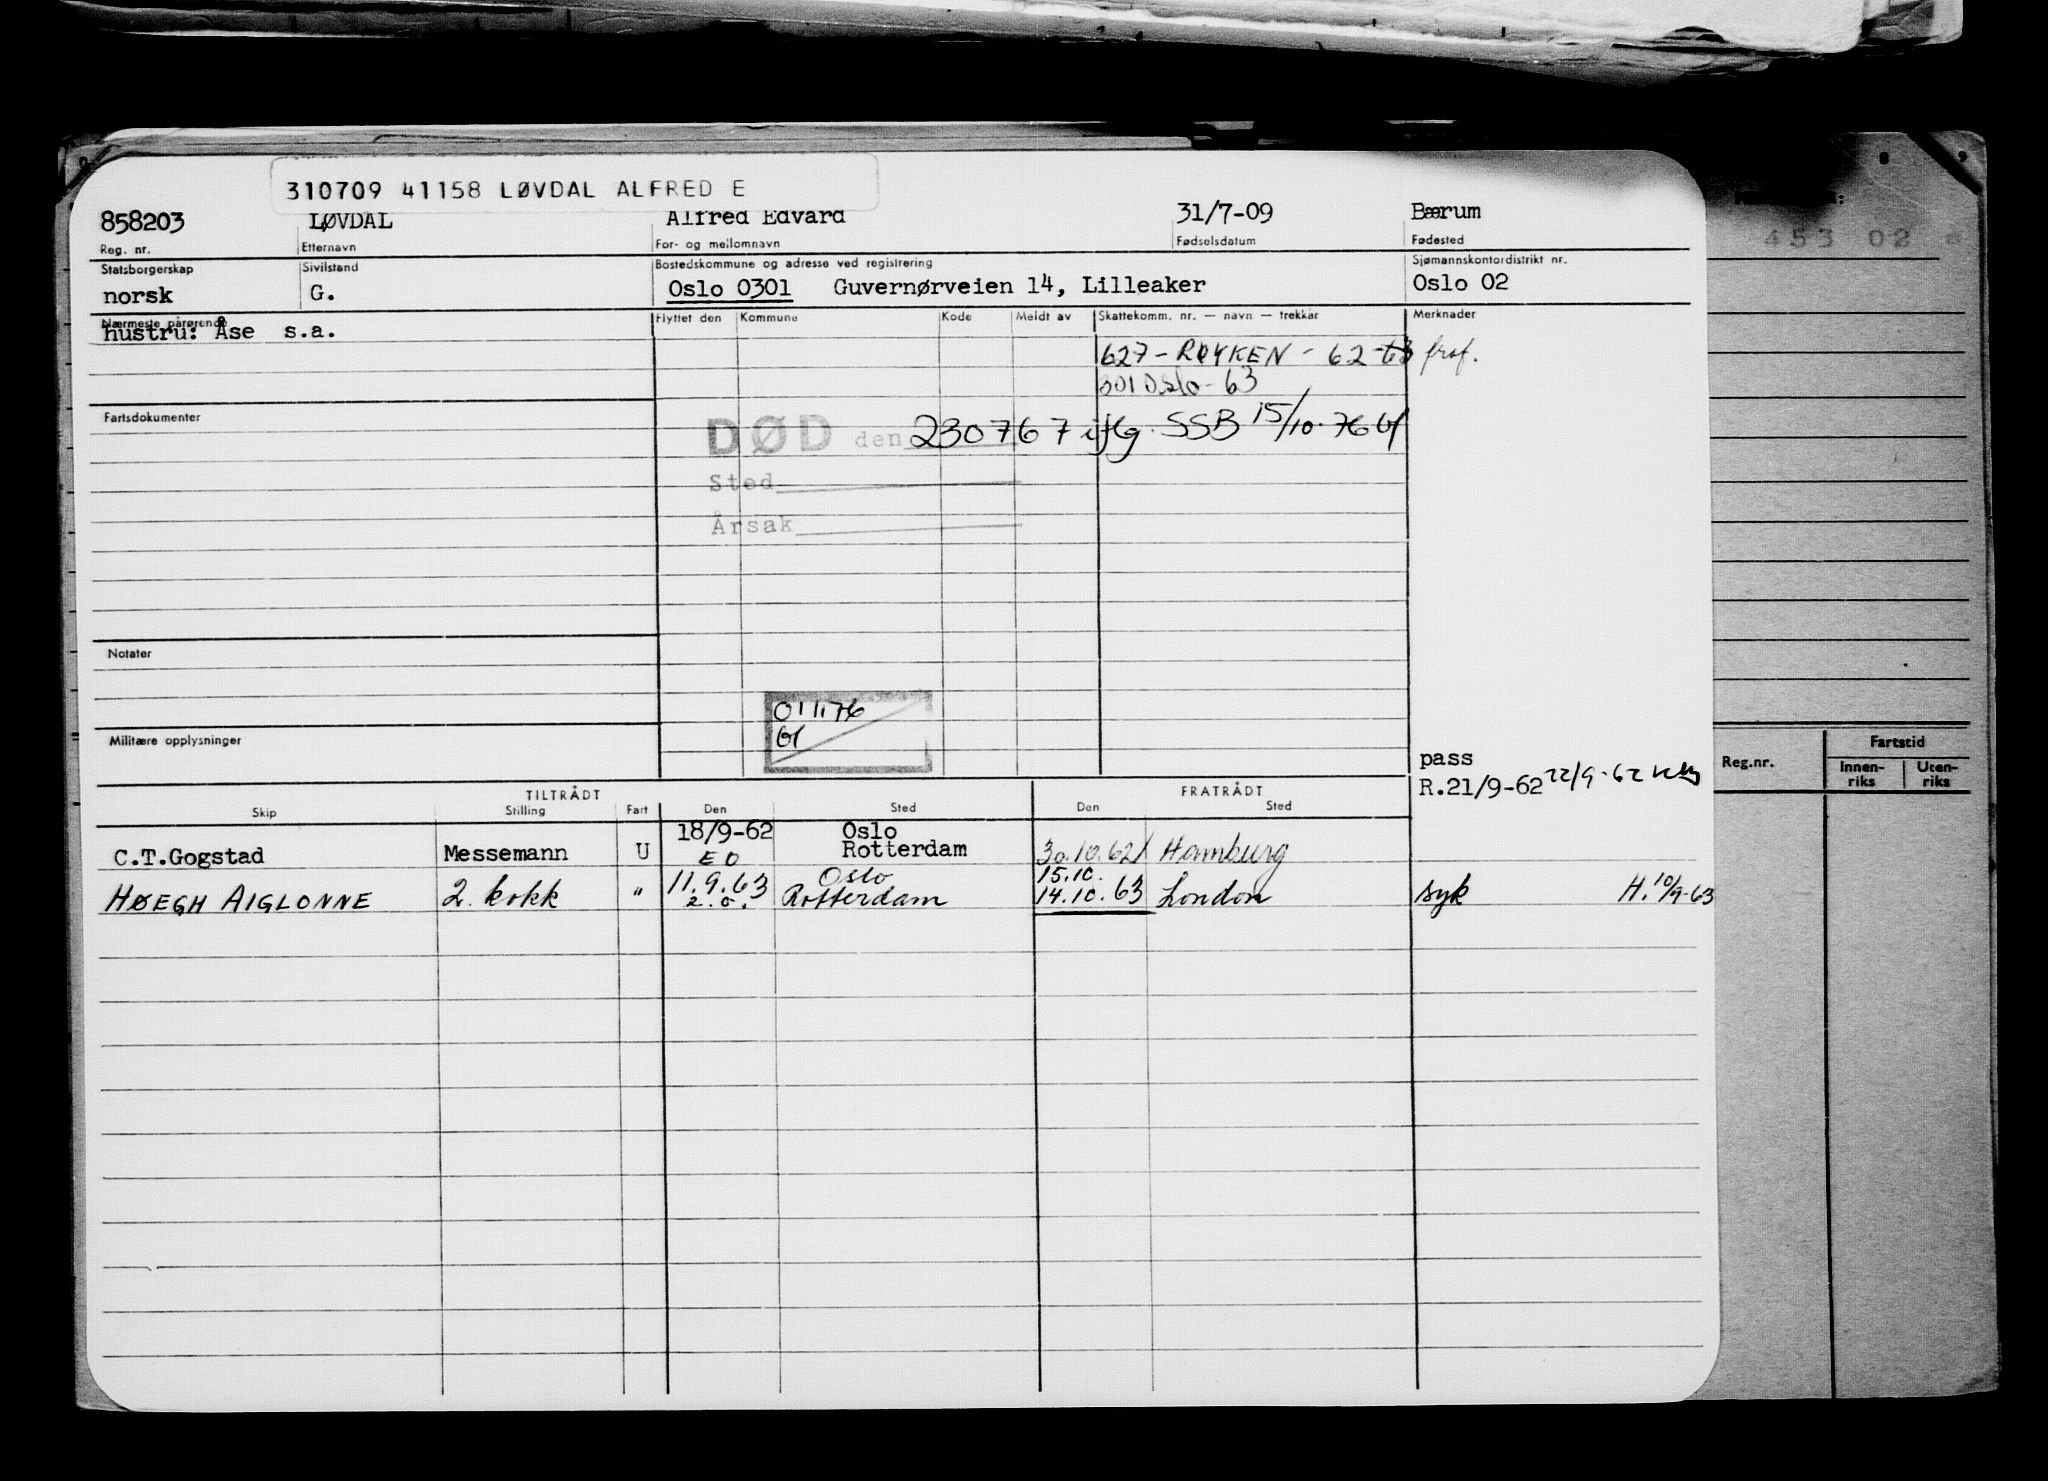 310709 41158 LØVDAL ALFRED E
858203 LØVDAL Alfred Edvard 31/7-09 Bærum
Reg. nr. Etternavn For- og mellomnavn Fødselsdatum Fødested
Statsborgerskap Sivilstand Bostedskommune og adresse ved registrering Sjømannskontordistrikt nr.
norsk G. Oslo 0301 Guvernørveien 14, Lilleaker Oslo 02
Nærmeste pårørende Flyttet den Kommune Kode Meldt av Skattekomm. nr. — navn — trekkår Merknader
hustru: Åse s.a.
627 - RØYKEN - 62-63 fraf.
301 Oslo - 63
Fartsdokumenter
DØD den 230767 iflg. SSB 15/10-76
Sted
Årsak
Notater
011176
Militære opplysninger
pass
R.21/9-62 22/9-62
TILTRÅDT FRATRÅDT
Skip Stilling Fart Den Sted Den Sted
18/9-62 Oslo
C.T.Gogstad Messemann U E O Rotterdam 30.10.62 Hamburg
Oslo 15.10.
HØEGH AIGLONNE 2. kokk " 11.9.63 2.o. Rotterdam 14.10.63 London syk H. 10/9-63
8 9
453 02
Reg.nr. Fartstid
Innen-riks Uten-riks